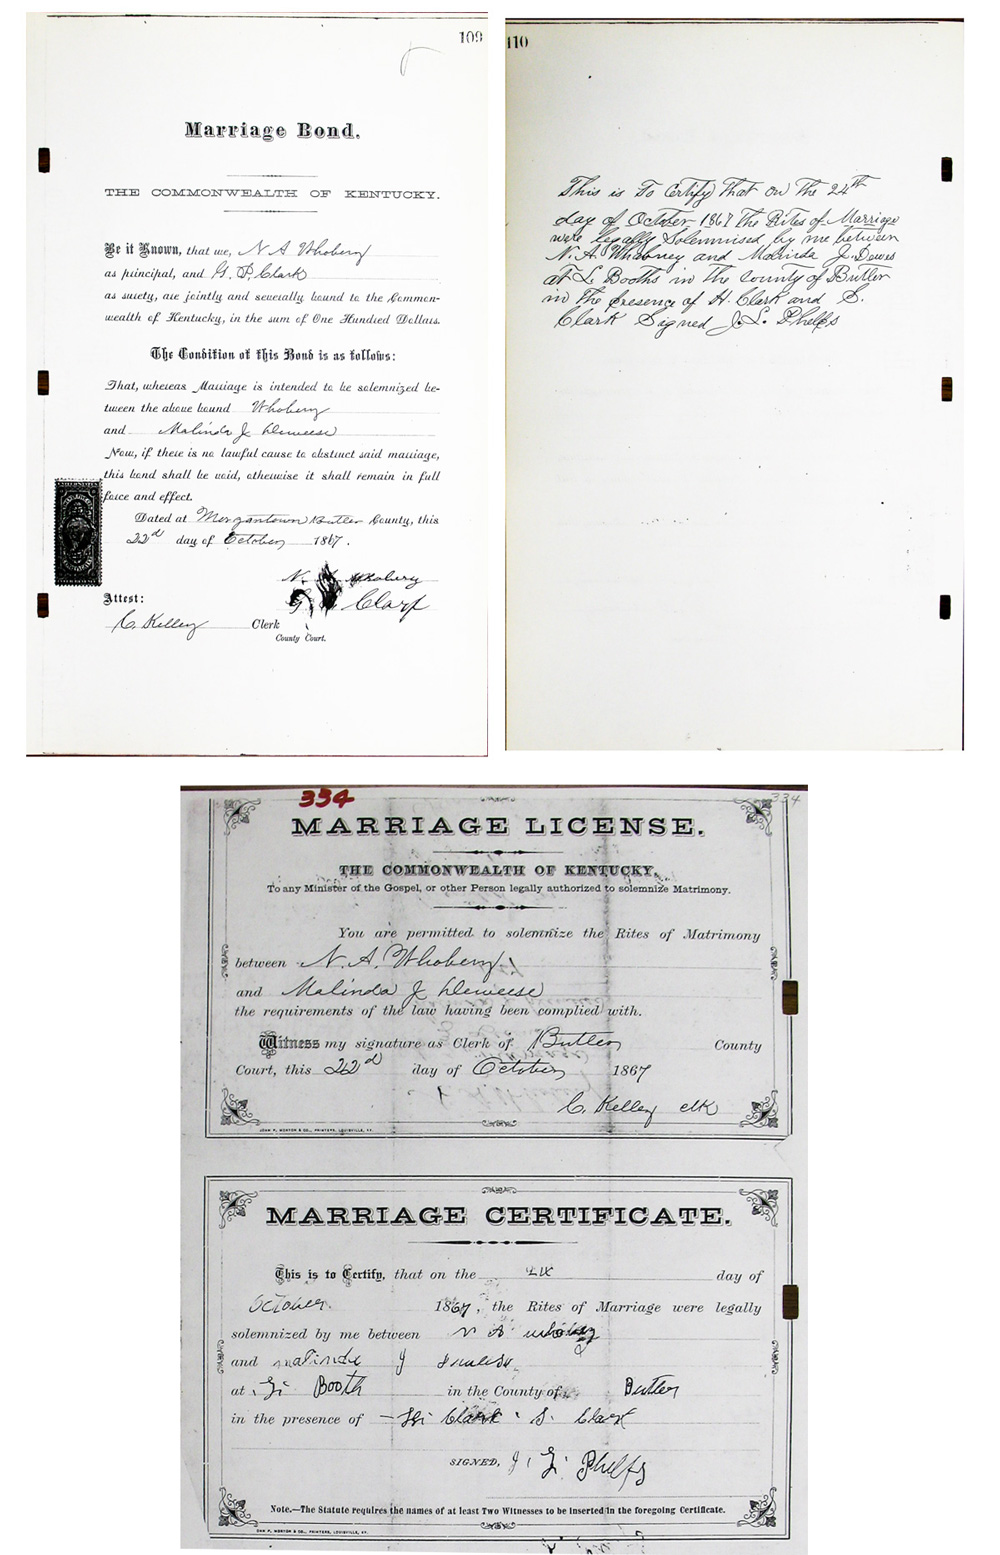 109
Marriage Bond.
THE COMMONWEALTH OF KENTUCKY.
Be it Known, that we, N A Whobery
as principal, and G. P. Clark
as surety, are jointly and severally bound to the Common-
wealth of Kentucky, in the sum of One Hundred Dollars.
The Condition of this Bond is as follows:
That, whereas Marriage is intended to be solemnized be-
tween the above bound Whobery
and Malinda J Deweese
Now, if there is no lawful cause to obstruct said marriage,
this bond shall be void, otherwise it shall remain in full
force and effect.
Dated at Morgantown Butler County, this
22d day of October 1867.
N. Whobery
G. Clark
Attest:
C. Kelley Clerk
County Court.
110
This is To Certify That on The 24th
day of October 1867 The Rites of Marriage
were legally Solemnised, by me between
N. A. Whabney and Malinda J. Dewes
at L. Booths in the County of Butler
in the presence of H. Clark and S.
Clark Signed J. L. Phelps
334
334
MARRIAGE LICENSE.
THE COMMONWEALTH OF KENTUCKY,
To any Minister of the Gospel, or other Person legally authorized to solemnize Matrimony.
You are permitted to solemnize the Rites of Matrimony
between N. A. Whobery
and Malinda J Deweese
the requirements of the law having been complied with.
Witness my signature as Clerk of Butler County
Court, this 22d day of October 1867
C. Kelley clk
JOHN P. MORTON & CO., PRINTERS, LOUISVILLE, KY.
MARRIAGE CERTIFICATE.
This is to Certify, that on the day of
October 1867, the Rites of Marriage were legally
solemnized by me between N A Whobry
and malinda J
at Booth in the County of Butler
in the presence of Clark S. Clark
SIGNED, J. Phelps
Note.—The Statute requires the names of at least Two Witnesses to be inserted in the foregoing Certificate.
JOHN P. MORTON & CO., PRINTERS, LOUISVILLE, KY.